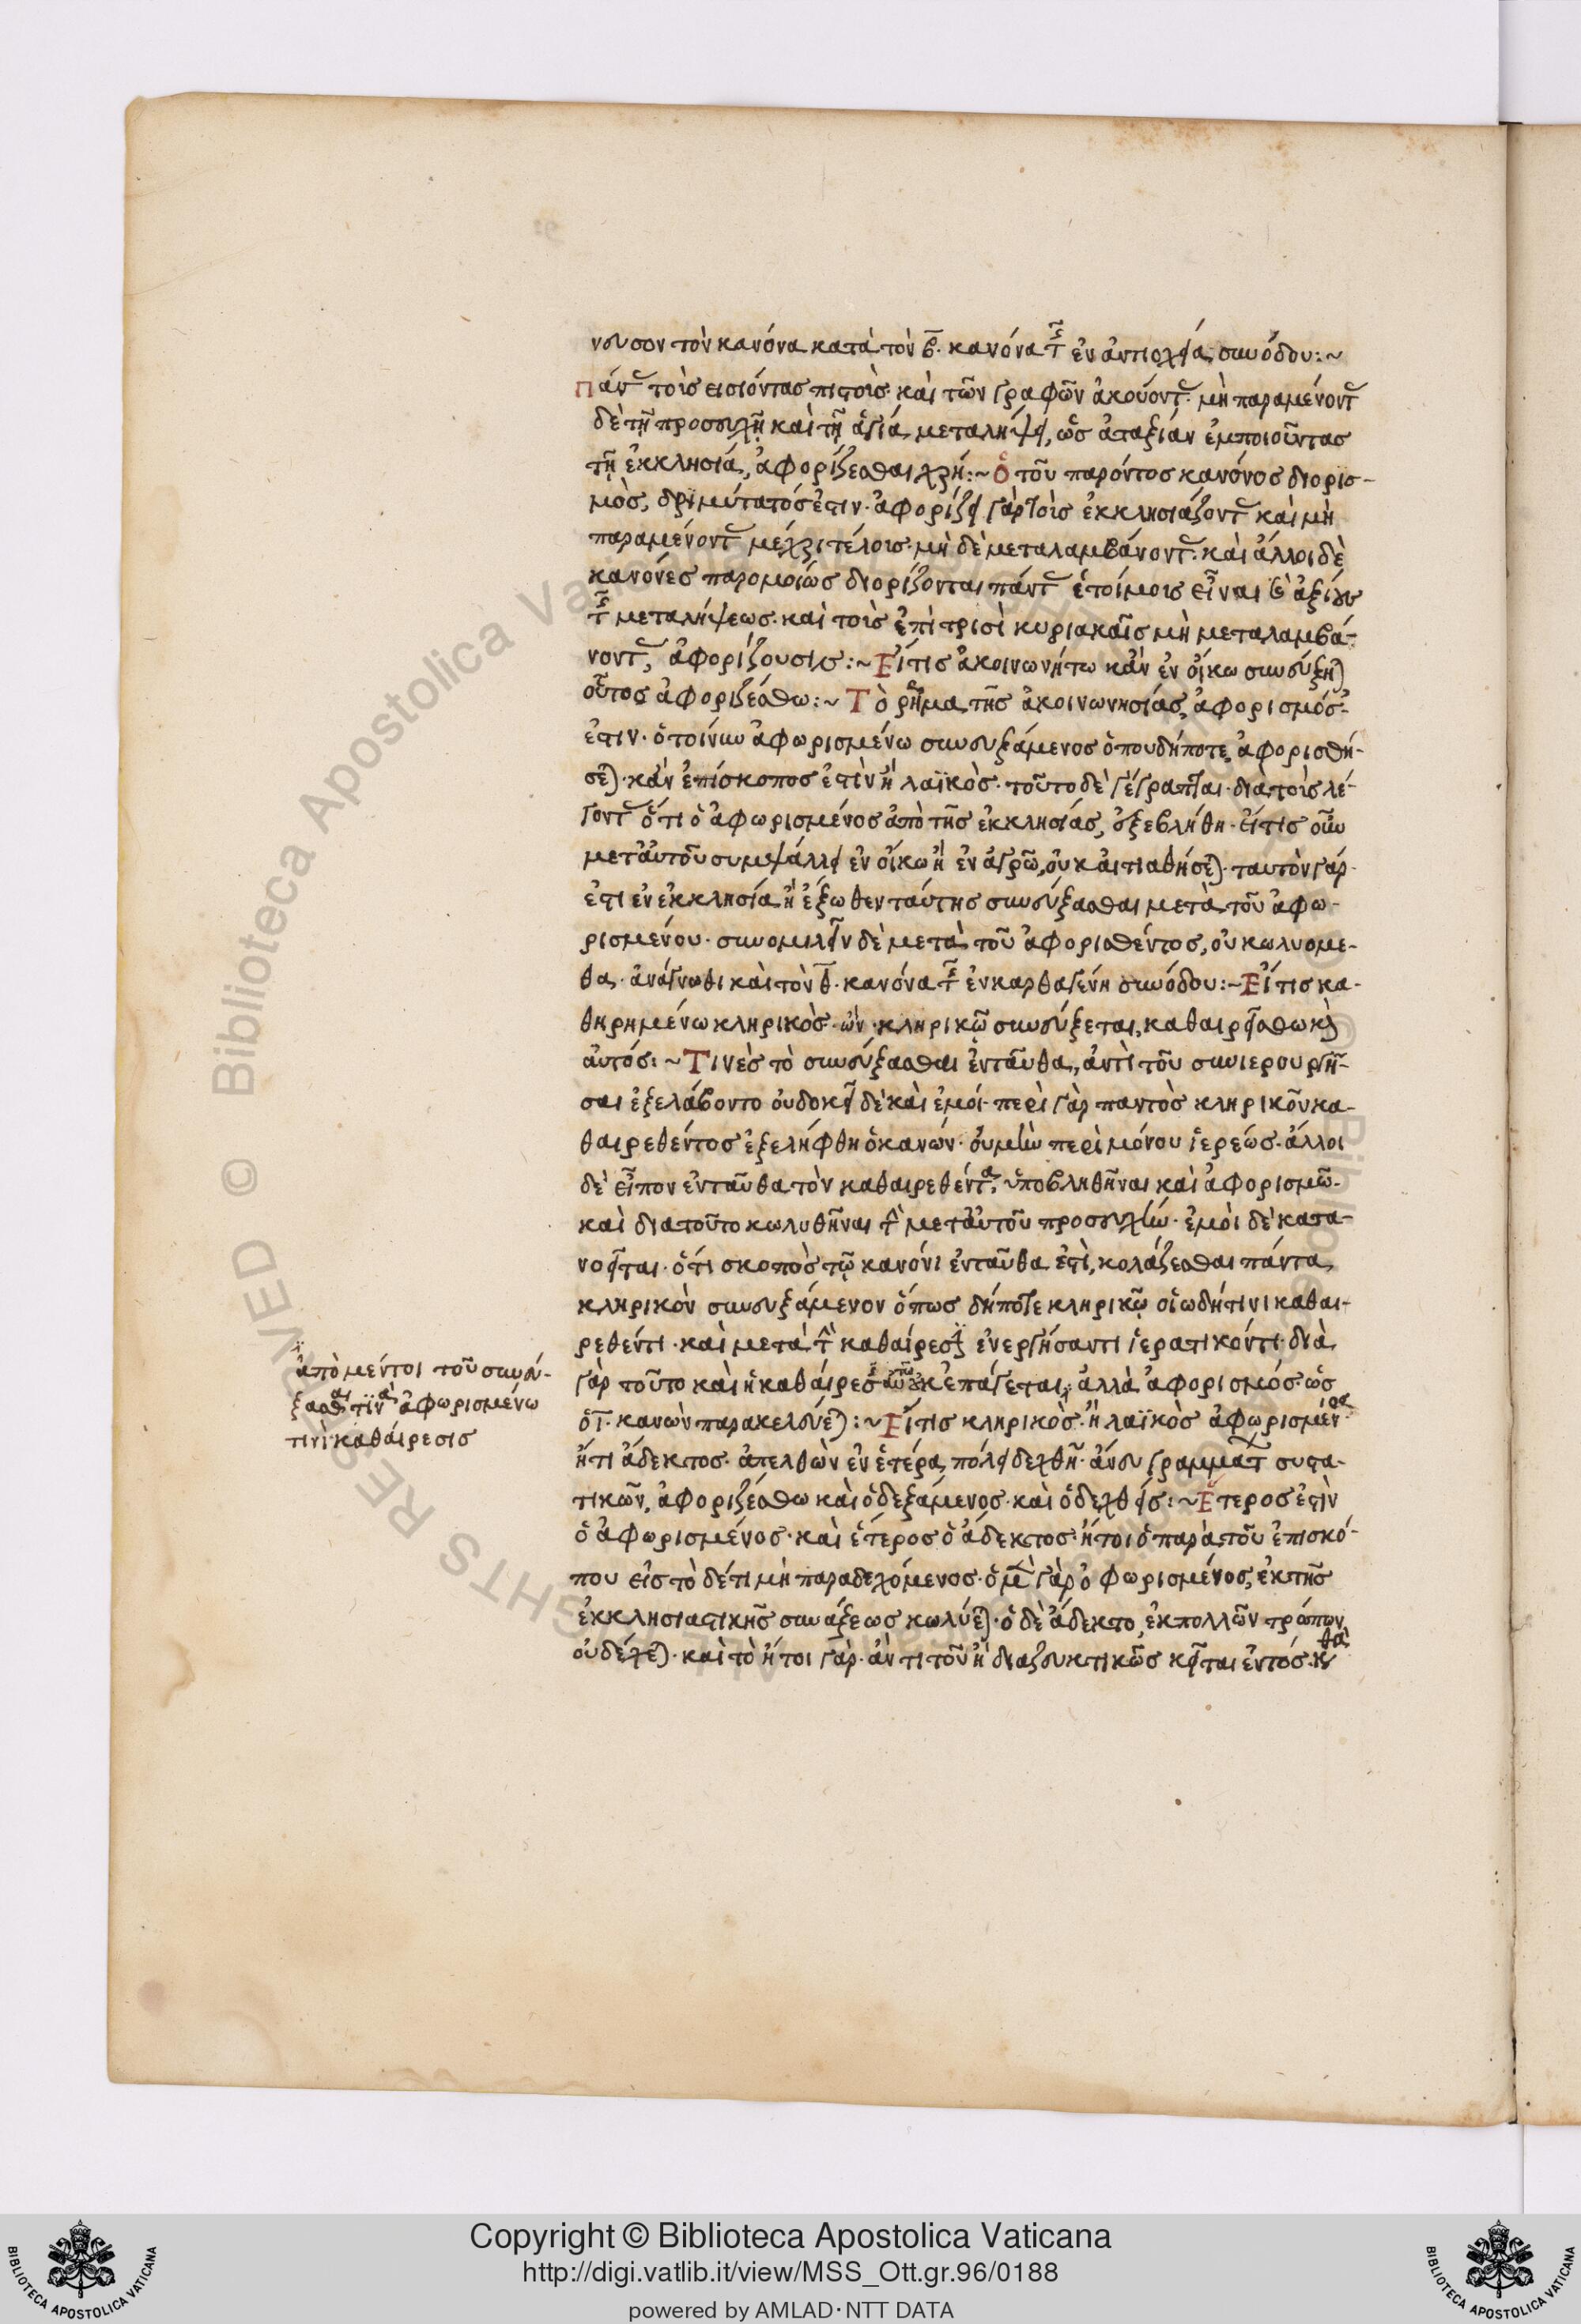 νευσον τὸν κανόνα κατὰ τὸν β. κανόνα τῆς ἐν ἀντιοχεία συνόδου:~
Πάντας τοὺς εἰσιόντας πιστοὺς καὶ τῶν γραφῶν ἀκούοντας. μὴ παραμένοντας
δὲ τῆ προσευχῆ καὶ τῆ ἁγία μεταλήψει, ὡς ἀταξίαν ἐμποιοῦντας
τῆ ἐκκλησία, ἀφορίζεσθαι χρή:~ Ὁ τοῦ παρόντος κανόνος διορισ-
μὸς, δριμύτατός ἐστιν. ἀφορίζει γὰρ τοὺς ἐκκλησιάζοντας καὶ μὴ
παραμένοντας μέχρι τέλους. μὴ δὲ μεταλαμβάνοντας. καὶ ἄλλοι δὲ
κανόνες παρομοίως διορίζονται πάντας ἑτοίμους εἶναι καὶ ἀξίους
τῆς μεταλήψεως. καὶ τοὺς ἐπὶ τρισὶ κυριακαῖς μὴ μεταλαμβά-
νοντας, ἀφορίζουσιν:~ Εἴτις ἀκοινωνήτω κἂν ἐν οἴκω συνεύξηται
οὗτος ἀφοριζέσθω:~ Τὸ ῥῆμα τῆς ἀκοινωνησίας, ἀφορισμός
ἐστιν. ὁ τοίνυν ἀφωρισμένω συνευξάμενος ὁπουδήποτε, ἀφορισθή-
σεται. κἂν ἐπίσκοπος ἐστὶν ἢ λαϊκὸς. τοῦτο δὲ γέγραπται. διὰ τοὺς λέ-
γοντας ὅτι ὁ ἀφωρισμένος ἀπὸ τῆς ἐκκλησίας, ἐξεβλήθη. εἴτις οὖν
μετ αὐτοῦ συμψάλλει ἐν οἴκω ἢ ἐν ἀγρῶ, οὐκ αἰτιαθήσεται. ταυτὸν γάρ
ἐστι ἐν ἐκκλησία ἢ ἔξωθεν ταύτης συνεύξασθαι μετὰ τοῦ ἀφω-
ρισμένου. συνομιλεῖν δὲ μετὰ τοῦ ἀφορισθέντος, οὐ κωλυόμε-
θα. ἀνάγνωθι καὶ τὸν θ. κανόνα τῆς ἐν καρθαγένη συνόδου:~ Εἴ τις κα-
θηρημένω κληρικὸς ὢν. κληρικῶ συνεύξεται, καθαιρείσθω καὶ
αὐτός:~ Τινὲς τὸ συνεύξασθαι ἐνταῦθα, ἀντὶ τοῦ συνιερουργῆ-
σαι ἐξελάβοντο οὐ δοκεῖ δὲ καὶ ἐμοί. περὶ γὰρ παντὸς κληρικοῦ κα-
θαιρεθέντος ἐξελήφθη ὁ κανών. οὐ μὴν περὶ μόνου ἱερέως. ἄλλοι
δὲ εἶπον ἐνταῦθα τὸν καθαιρεθέντα, ὑποβληθῆναι καὶ ἀφορισμῶ.
καὶ διατοῦτο κωλυθῆναι τὴν μετ αὐτοῦ προσευχὴν. ἐμοὶ δὲ κατα-
νοεῖται. ὅτι σκοπὸς τῶ κανόνι ἐνταῦθα ἐστὶ, κολάζεσθαι πάντα
κληρικὸν συνευξάμενον ὅπως δήποτε κληρικῶ οἱωδήτινι καθαι-
ρεθέντι. καὶ μετὰ τὴν καθαίρεσιν ἐνεργήσαντι ἱερατικόν τι. διὰ
γὰρ τοῦτο καὶ ἡ καθαίρεσις αὐτῶ οὐκ ἐπάγεται, ἀλλὰ ἀφορισμός. ὡς
ὁ ι. κανὼν παρακελεύεται:~ Εἴτις κληρικὸς. ἢ λαϊκὸς ἀφωρισμένος
ἤτι ἄδεκτος. ἀπελθὼν ἐν ἑτέρα πόλει δεχθῆ. ἄνευ γραμμάτων συστα-
τικῶν, ἀφοριζέσθω καὶ ὁ δεξάμενος. καὶ ὁ δεχθείς:~ Ἕτερος ἐστὶν
ὁ ἀφωρισμένος. καὶ ἕτερος ὁ ἄδεκτος. ἤτοι ὁ παρὰ τοῦ ἐπισκό-
που εἰς τὸ δέτι μὴ παραδεχόμενος. ὁ μὲν γὰρ ὀφωρισμένος, ἐκ τῆς
ἐκκλησιαστικῆς συνάξεως κωλύεται. ὁ δὲ ἄδεκτο, ἐκ πολλῶν τρόπων
οὐ δέχεται. καὶ τὸ ἤτοι γὰρ. ἀντι τοῦ ἢ διαζευκτικῶς κεῖται ἐντός. καθὰ
ἀπὸ μέντοι τοῦ συνεύ-
ξασθαι τινὰ ἀφωρισμένω
τινὶ καθαίρεσις
Copyright © Biblioteca Apostolica Vaticana
http://digi.vatlib.it/view/MSS_Ott.gr.96/0188
powered by AMLAD·NTT DATA